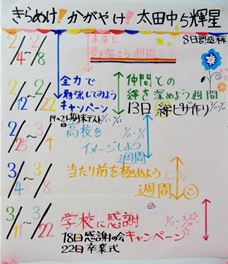 きらめけ!かがやけ!太田中ら輝星
8日
2/4~2/8
全力で
勉強してみよう
キャンペーン
仲間との
絆を深めよう週間
2/12~2/22
19~21期末テスト
13日 絆ピザ作り
2/25~3/1
高校を
イメージしよう
週間
3/4~3/8
当たり前を極めよう
週間
3/11~3/22
学校に感謝
キャンペーン
18日感謝の会
22日卒業式